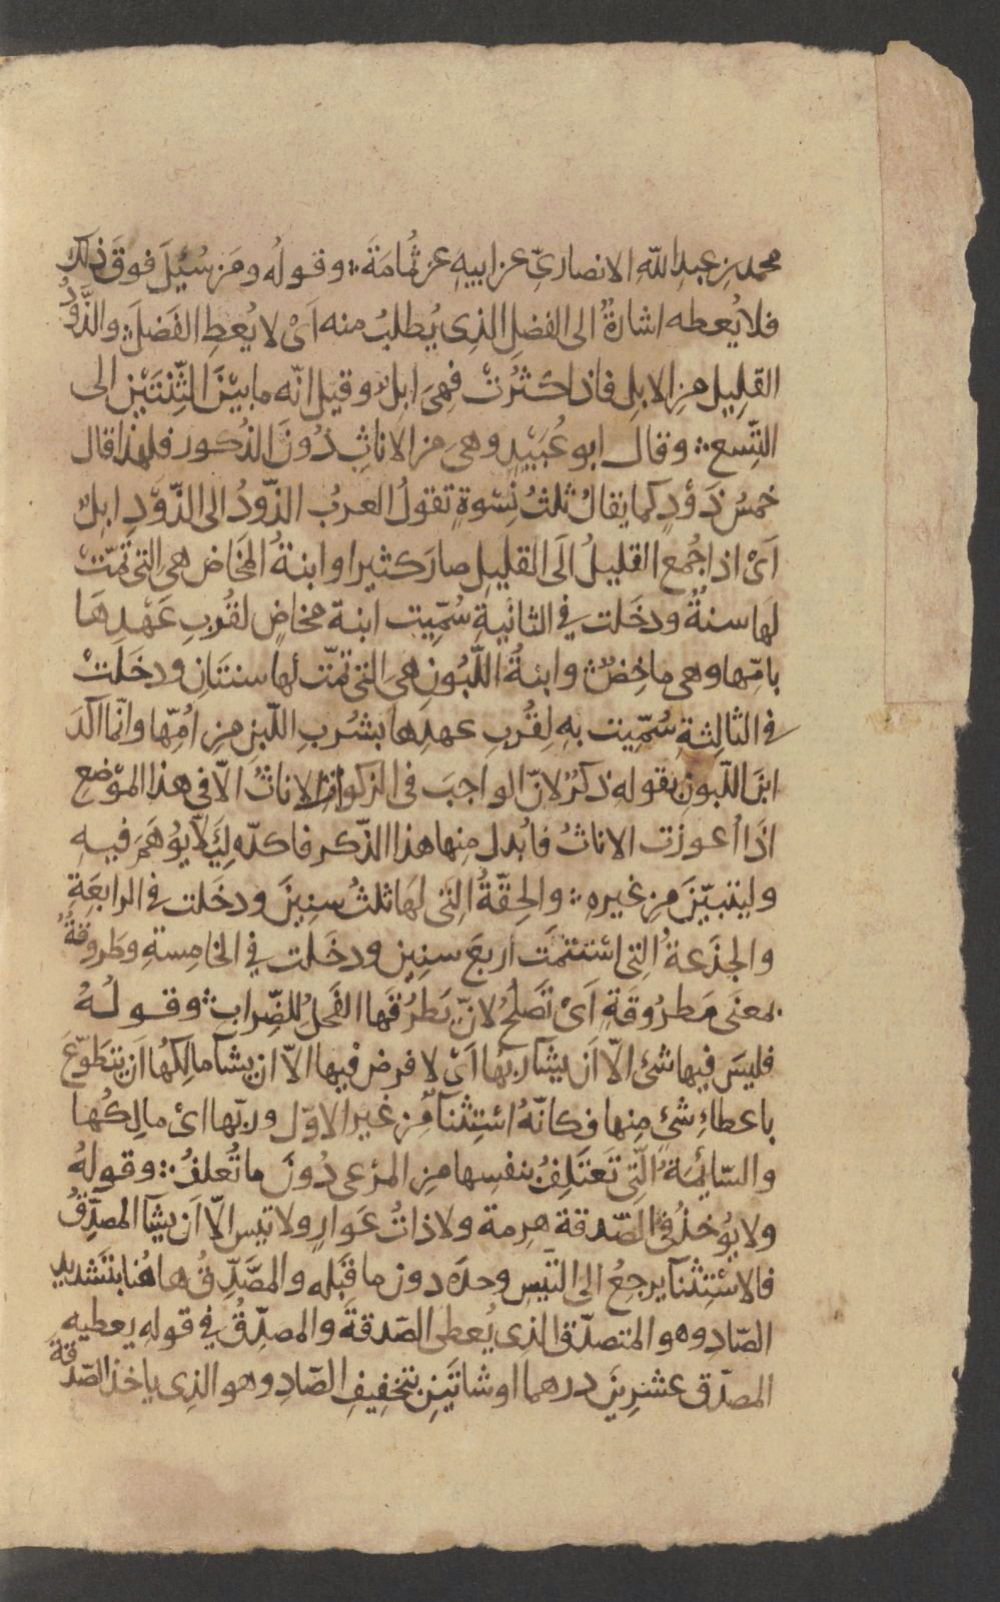 محمد بن عبد الله الانصاريّ عن ابيه عن ثُمامَةَ ؞ وقوله ومَن سُئِلَ فوقَ ذلك
فلا يُعطه اشارةٌ الى الفضلِ الذى يُطلبُ منه اَىْ لا يُعطِ الفَضلَ ؞ والذَّودُ
القلِيل مِن الابلِ فاذا كَثُرَتْ فهىَ ابلٌ وقيل انّه ما بيْنَ الثِّنْتَيْنِ الى
التِّسع ؞ وقال ابو عُبَيْدٍ وهىَ من الاناثِ دُونَ الذُكور فلهذا قال
خمسُ ذَوْدٍ كما يقالُ ثلثُ نِسْوةٍ تقولُ العربُ الذّودُ الى الذّوْدِ ابِلٌ
اَىْ اذا جُمع القليلُ الَى القليلِ صارَ كثيرا وابنةُ المخَاض هى التى تمّت
لها سنةٌ ودخَلت في الثانيةِ سُمِّيت ابنة مخاضٍ لقُربِ عَهْدِهَا
بامّها وهى ماخِضٌ ؞ وابنةُ اللَّبُونِ هىَ التى تمّت لها سنتَانِ ودخَلَتْ
في الثالِثةِ سُمِّيت بهِ لِقُربِ عهدِها بشُربِ اللّبنِ مِن امِّها وانّما اكّدَ
ابنَ اللّبونِ بقوله ذكرٌ لانّ الواجبَ فى الزكوات الاناثُ الّا في هذا الموْضع
اذَا اُعوِزت الاناثُ فابُدل مِنها هذا الذّكر فاكدّه لِئَلّا يُوهَمَ فيهِ
وليتبيّنَ مِن غيرهِ ؞ والحِقّةُ الِتى لهَا ثلثُ سنِينَ ودخَلت في الرابعَةِ
والجذَعةُ الِتى اسْتتمّت اربعَ سنِين ودخَلت في الخامِسةِ وطَروقةُ
بمعنَى مَطرُوقَةٍ اَىْ تَصلُحُ لانّ يَطرُقَها الفَحلُ للضِّراب ؞ وقولهُ
فليسَ فيها شئ الّا اَن يشآ ربّها اَىْ لا فرض فيها الّا ان يشآ مالِكهُا اَن يتطوّعَ
باعطاءِ شئٍ مِنها فكانّهُ اسْتِثنآ مِن غير الاوّل وربّها اىْ مالِكُها
والسّائمةُ الّتى تَعتَلِفُ بنفسِها مِن المرْعى دُونَ ما تُعلفُ ؞ وقولهُ
ولا يُوخذُ فى الصّدقة هرمة ولا ذاتُ عَوارٍ ولا تيس الّا اَن يشآ المصدِّقُ
فالاسْتِثنآ يرجعُ الى التيسِ وحدَه دون ما قبَله والمصَّدِّقُ هاهُنا بتَشديدِ
الصّادِ وهو المتصدّق الذى يُعطى الصّدقةَ والمصدِّقُ في قولهِ يعطيهِ
المصدّق عشرينَ درهما او شاتَينِ بتخفِيفِ الصّادِ وهو الذى ياخذ الصّدقةَ